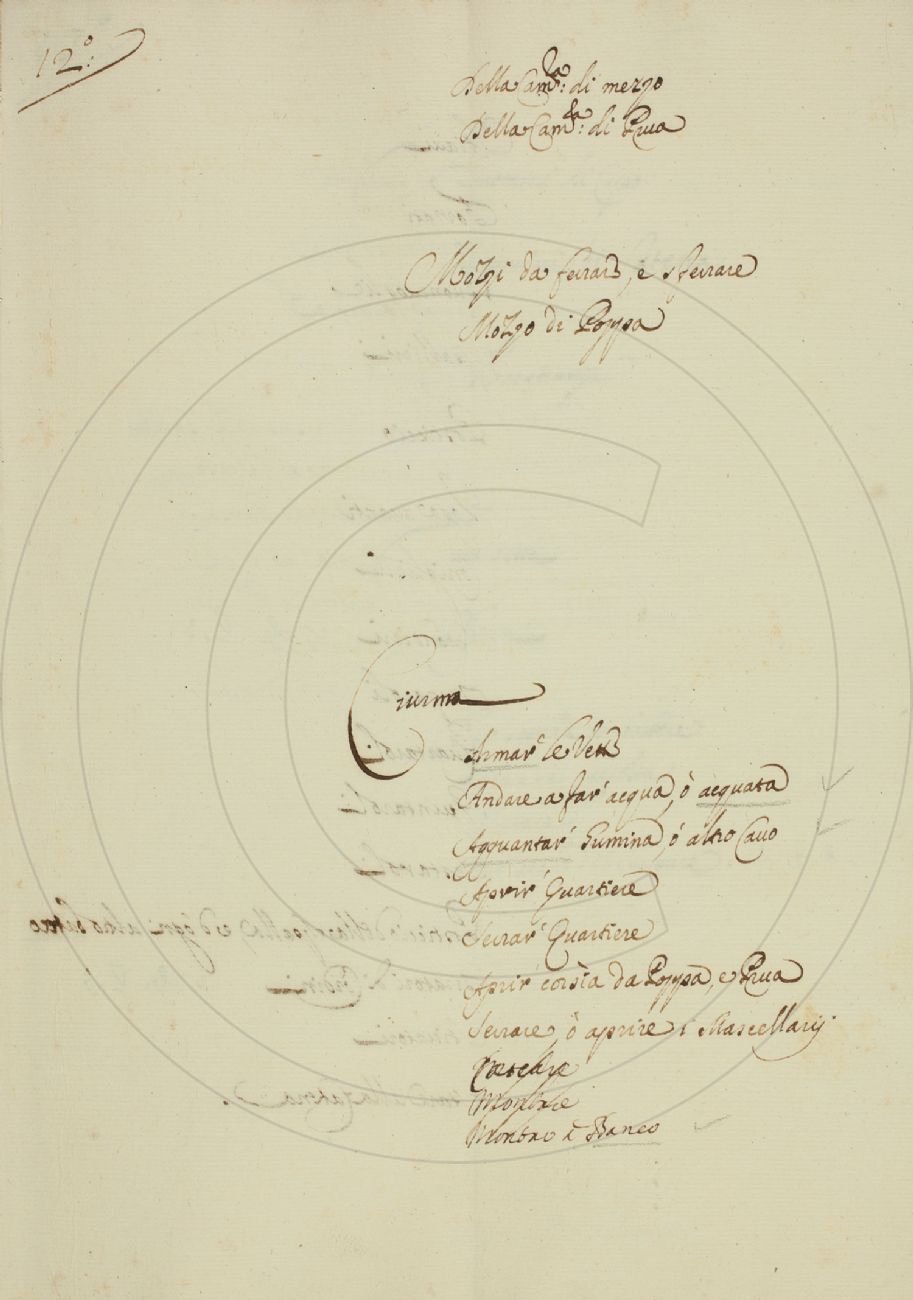 12.º
Della Cam.ra di mezo
Della Cam.ra di Prua
Mozzi da ferrare, e sferrare
Mozzo di Poppa
Ciurma
Armar' le Vele
Andare a far' acqua, ò acquata
Agguantar' Gumina, ò altro Cavo
Aprir' Quartiere
Serrar' Quartiere
Aprir' corsia da Poppa, e Prua
Serrare, ò aprire i Mascellarij
Montare
Montar i Banco